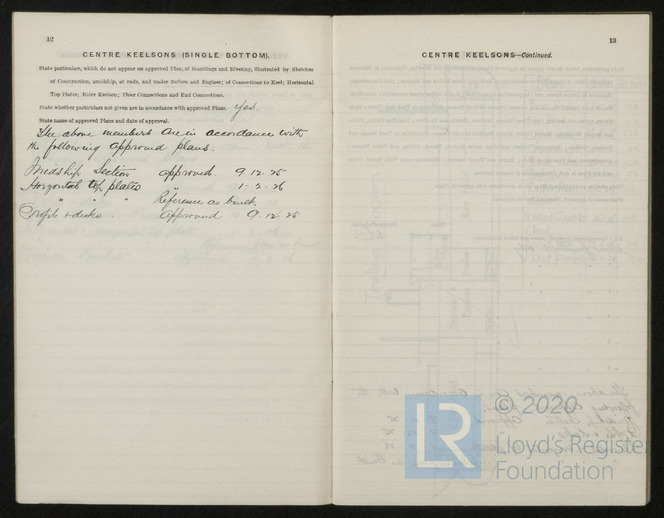 12
CENTRE KEELSONS (SINGLE BOTTOM).
State particulars, which do not appear on approved Plan, of Scantlings and Riveting, illustrated by Sketches
of Construction, amidship, at ends, and under Boilers and Engines; of Connections to Keel; Horizontal
Top Plates; Rider Keelson; Floor Connections and End Connections.
State whether particulars not given are in accordance with approved Plans. Yes.
State name of approved Plans and date of approval.
The above members are in accordance with
the following approved plans.
Midship Section approved. 9.12.25
Horizontal top plates " 1.2.26
" " " Reference as built.
Profile & decks. Approved 9.12.25
13
CENTRE KEELSONS—Continued.
© 2020
LR
Lloyd's Register
Foundation